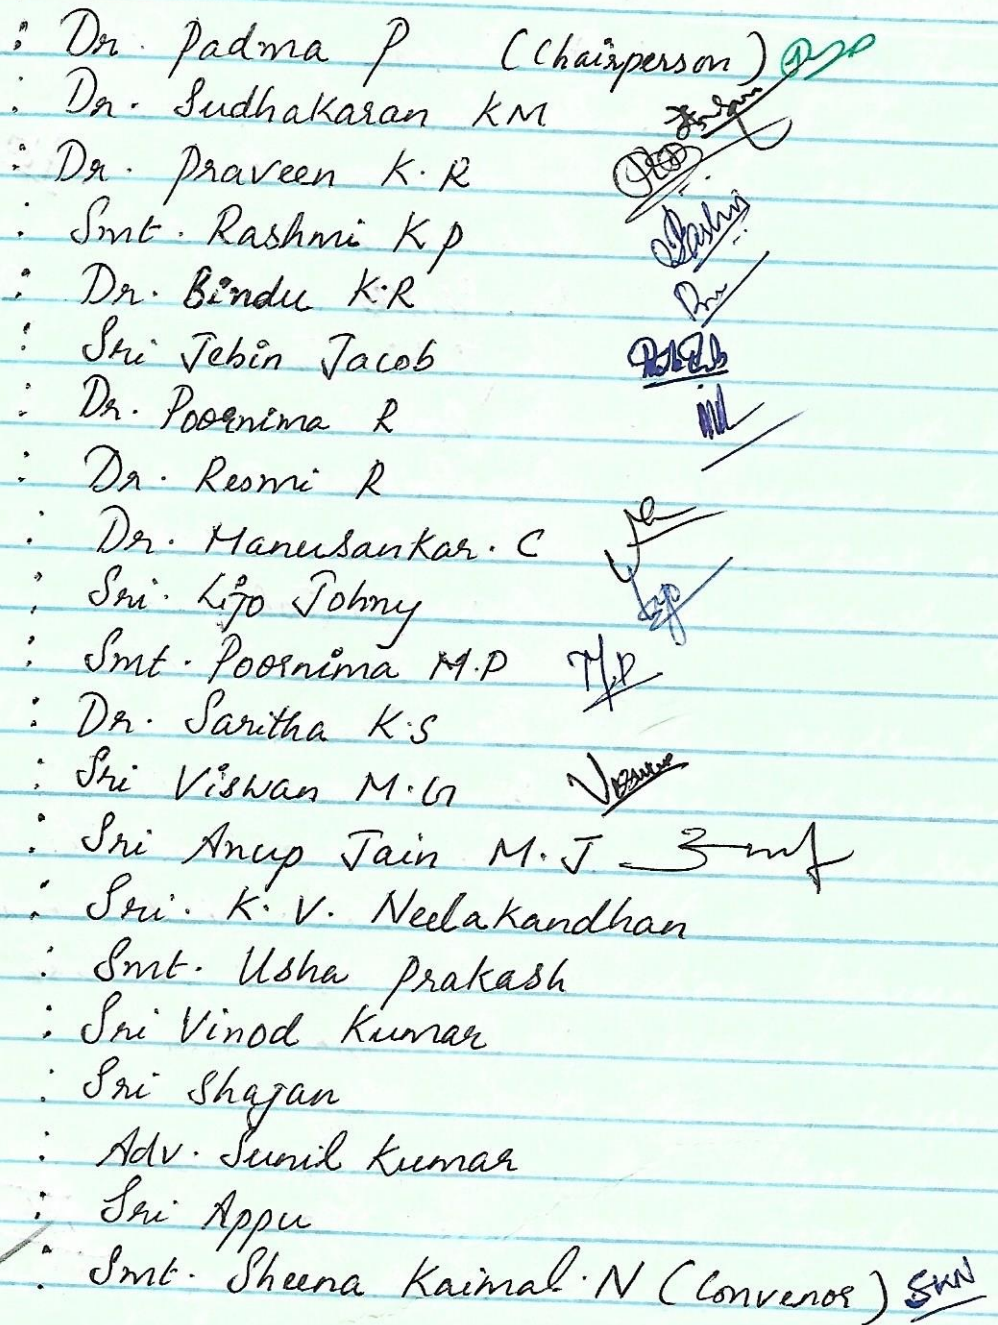 : Dr. Padma P (Chairperson)
: Dr. Sudhakaran KM
: Dr. Praveen K.R
: Smt. Rashmi K P
: Dr. Bindu K.R
: Sri Jebin Jacob
: Dr. Poornima R
: Dr. Resmi R
: Dr. Manusankar. C
: Sri. Lijo Johny
: Smt. Poornima M.P M.P
: Dr. Saritha K.S
: Sri Viswan M.G
: Sri Anup Jain M.J
: Sri. K. V. Neelakandhan
: Smt. Usha Prakash
: Sri Vinod Kumar
: Sri Shajan
: Adv. Sunil Kumar
: Sri Appu
: Smt. Sheena Kaimal. N (Convenor) SKN